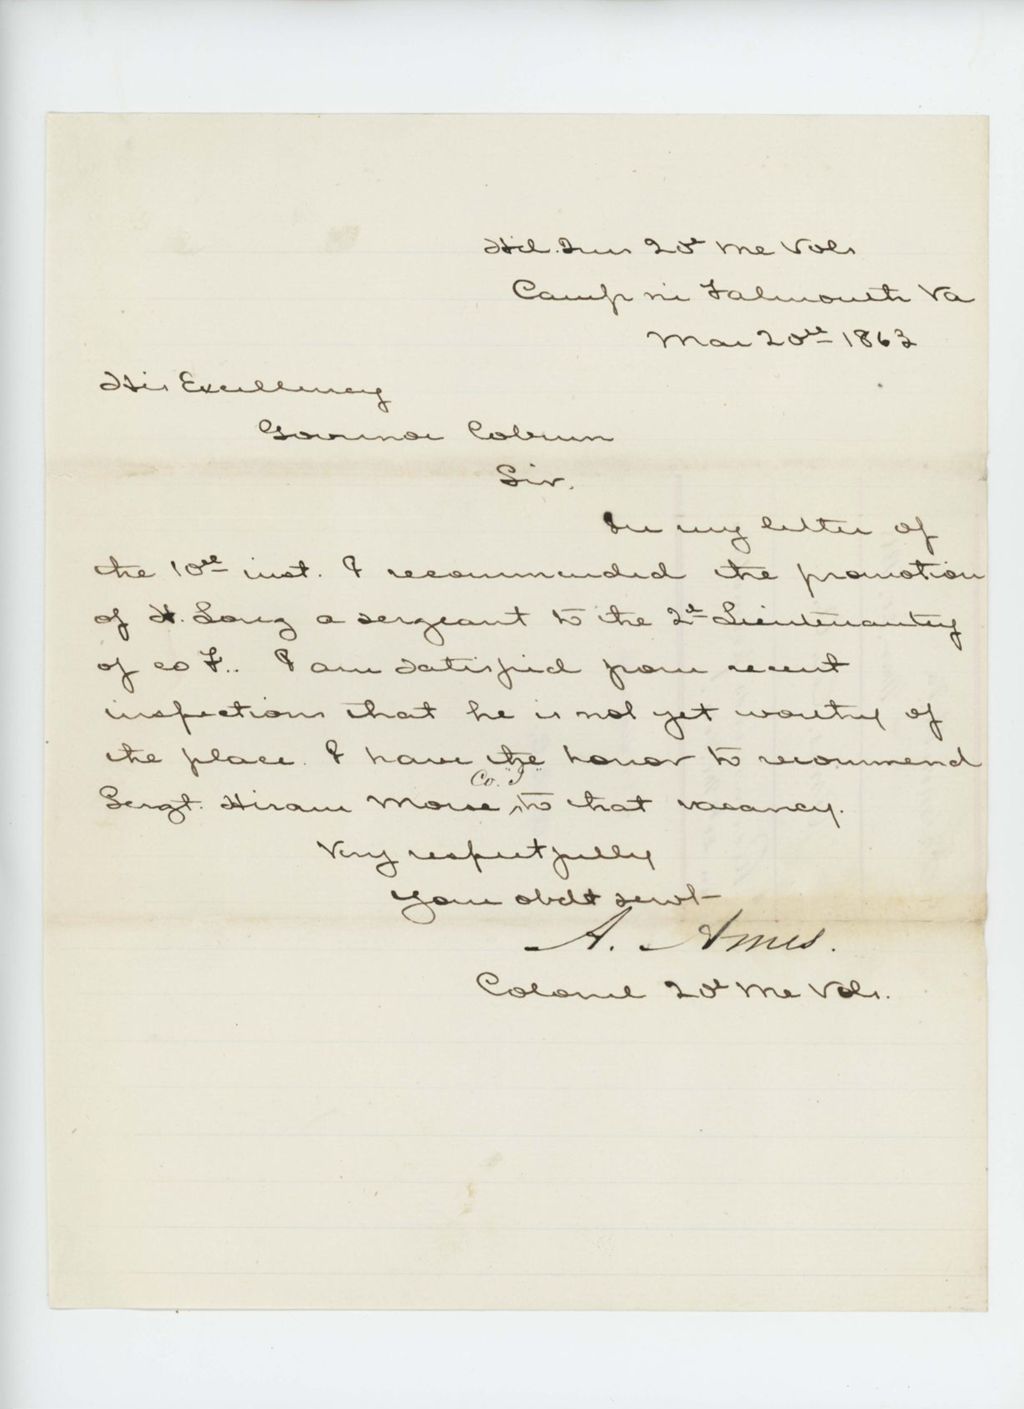 Hd. Qrs 20th Me Vols
Camp nr Falmouth Va
Mar 20th 1863
His Excellency
Governor Coburn
Sir.
In my letter of
the 10th inst. I recommended the promotion
of H. Long a sergeant to the 2d Lieutenantcy
of co F.. I am satisfied from recent
inspections that he is not yet worthy of
the place. I have the honor to recommend
Co. "I"
Sergt. Hiram Morse, to that vacancy.
Very respectfully
Your obdt servt
A. Ames.
Colonel 20th Me Vols.